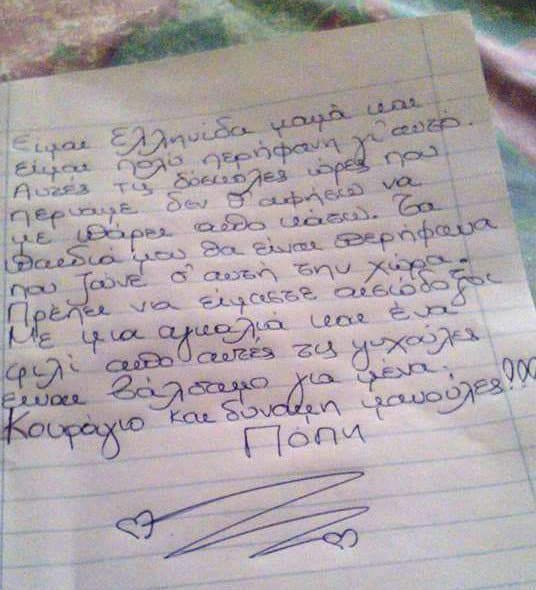 Είμαι Ελληνίδα μαμά και
είμαι πολύ περήφανη γι' αυτό.
Αυτές τις δύσκολες ώρες που
περνάμε δεν θ' αφήσω να
με πάρει από κάτω. Τα
παιδιά μου θα είναι περήφανα
που ζούνε σ' αυτή την χώρα.
Πρέπει να είμαστε αισιόδοξοι
Με μια αγκαλιά και ένα
φιλί από αυτές τις ψυχούλες
είναι βάλσαμο για μένα.
Κουράγιο και δύναμη μανούλες!!!
Πόπη